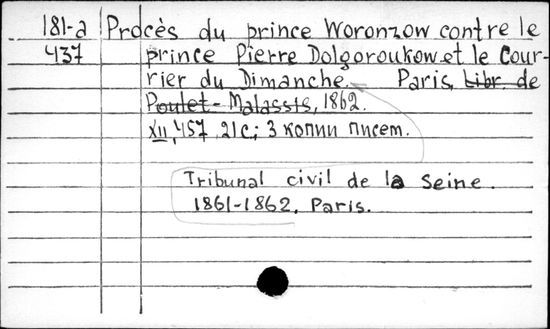 181-a Procès du prince Woronzow contre le
437 prince Pierre Dolgoroukow et le Cour-
rier du Dimanche. Paris, Libr. de
Poulet-Malassis, 1862.
XII, 457, 21 c.; 3 копии писем.
Tribunal civil de la Seine.
1861-1862, Paris.